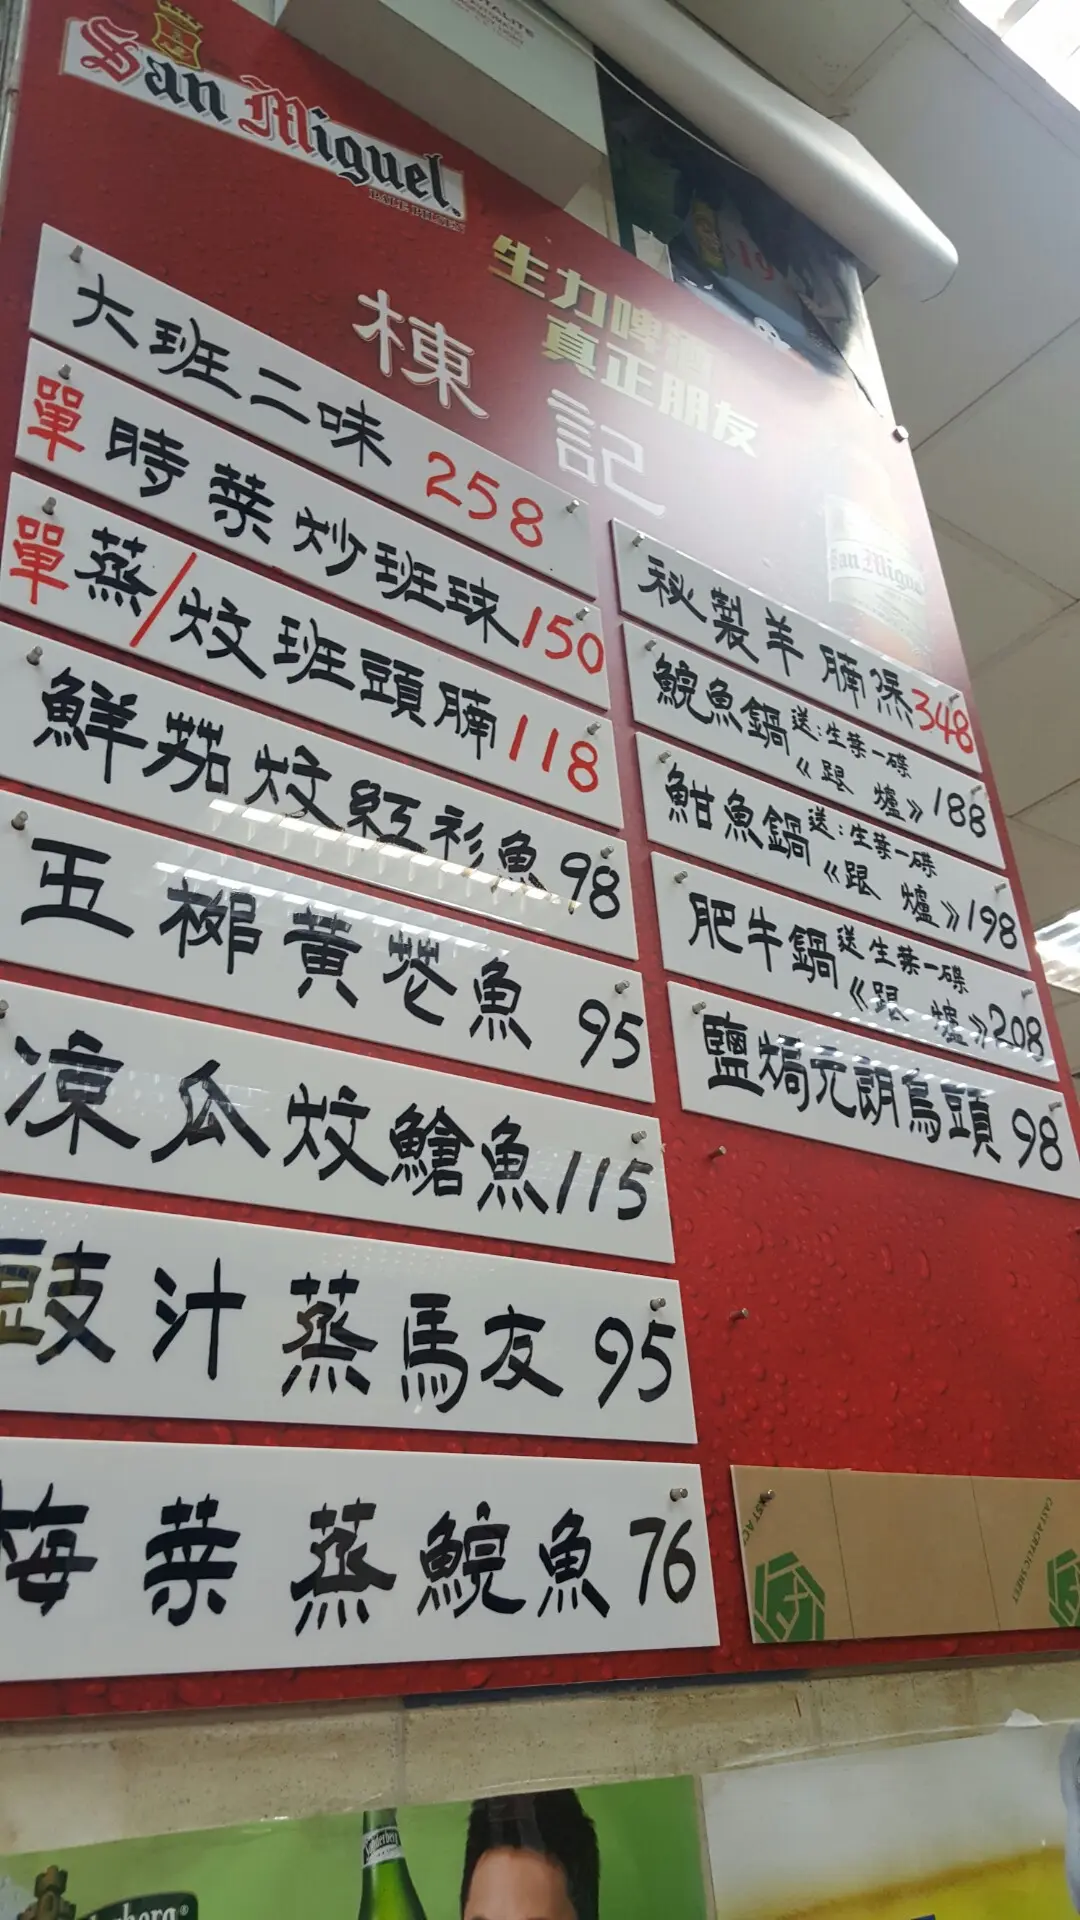 San Miguel
PALE PILSEN
生力啤酒
真正朋友
棟記
大班二味 258
單 時菜炒班球 150
單 蒸/炆班頭腩 118
鮮茄炆紅衫魚 98
五柳黃花魚 95
凉瓜炆鱠魚 115
豉汁蒸馬友 95
梅菜蒸鯇魚 76
秘製羊腩煲 348
鯇魚鍋 送:生菜一碟 《跟爐》 188
魽魚鍋 送:生菜一碟 《跟爐》 198
肥牛鍋 送生菜一碟 《跟爐》 208
鹽焗元朗烏頭 98
San Miguel
CAST ACRYLIC SHEET